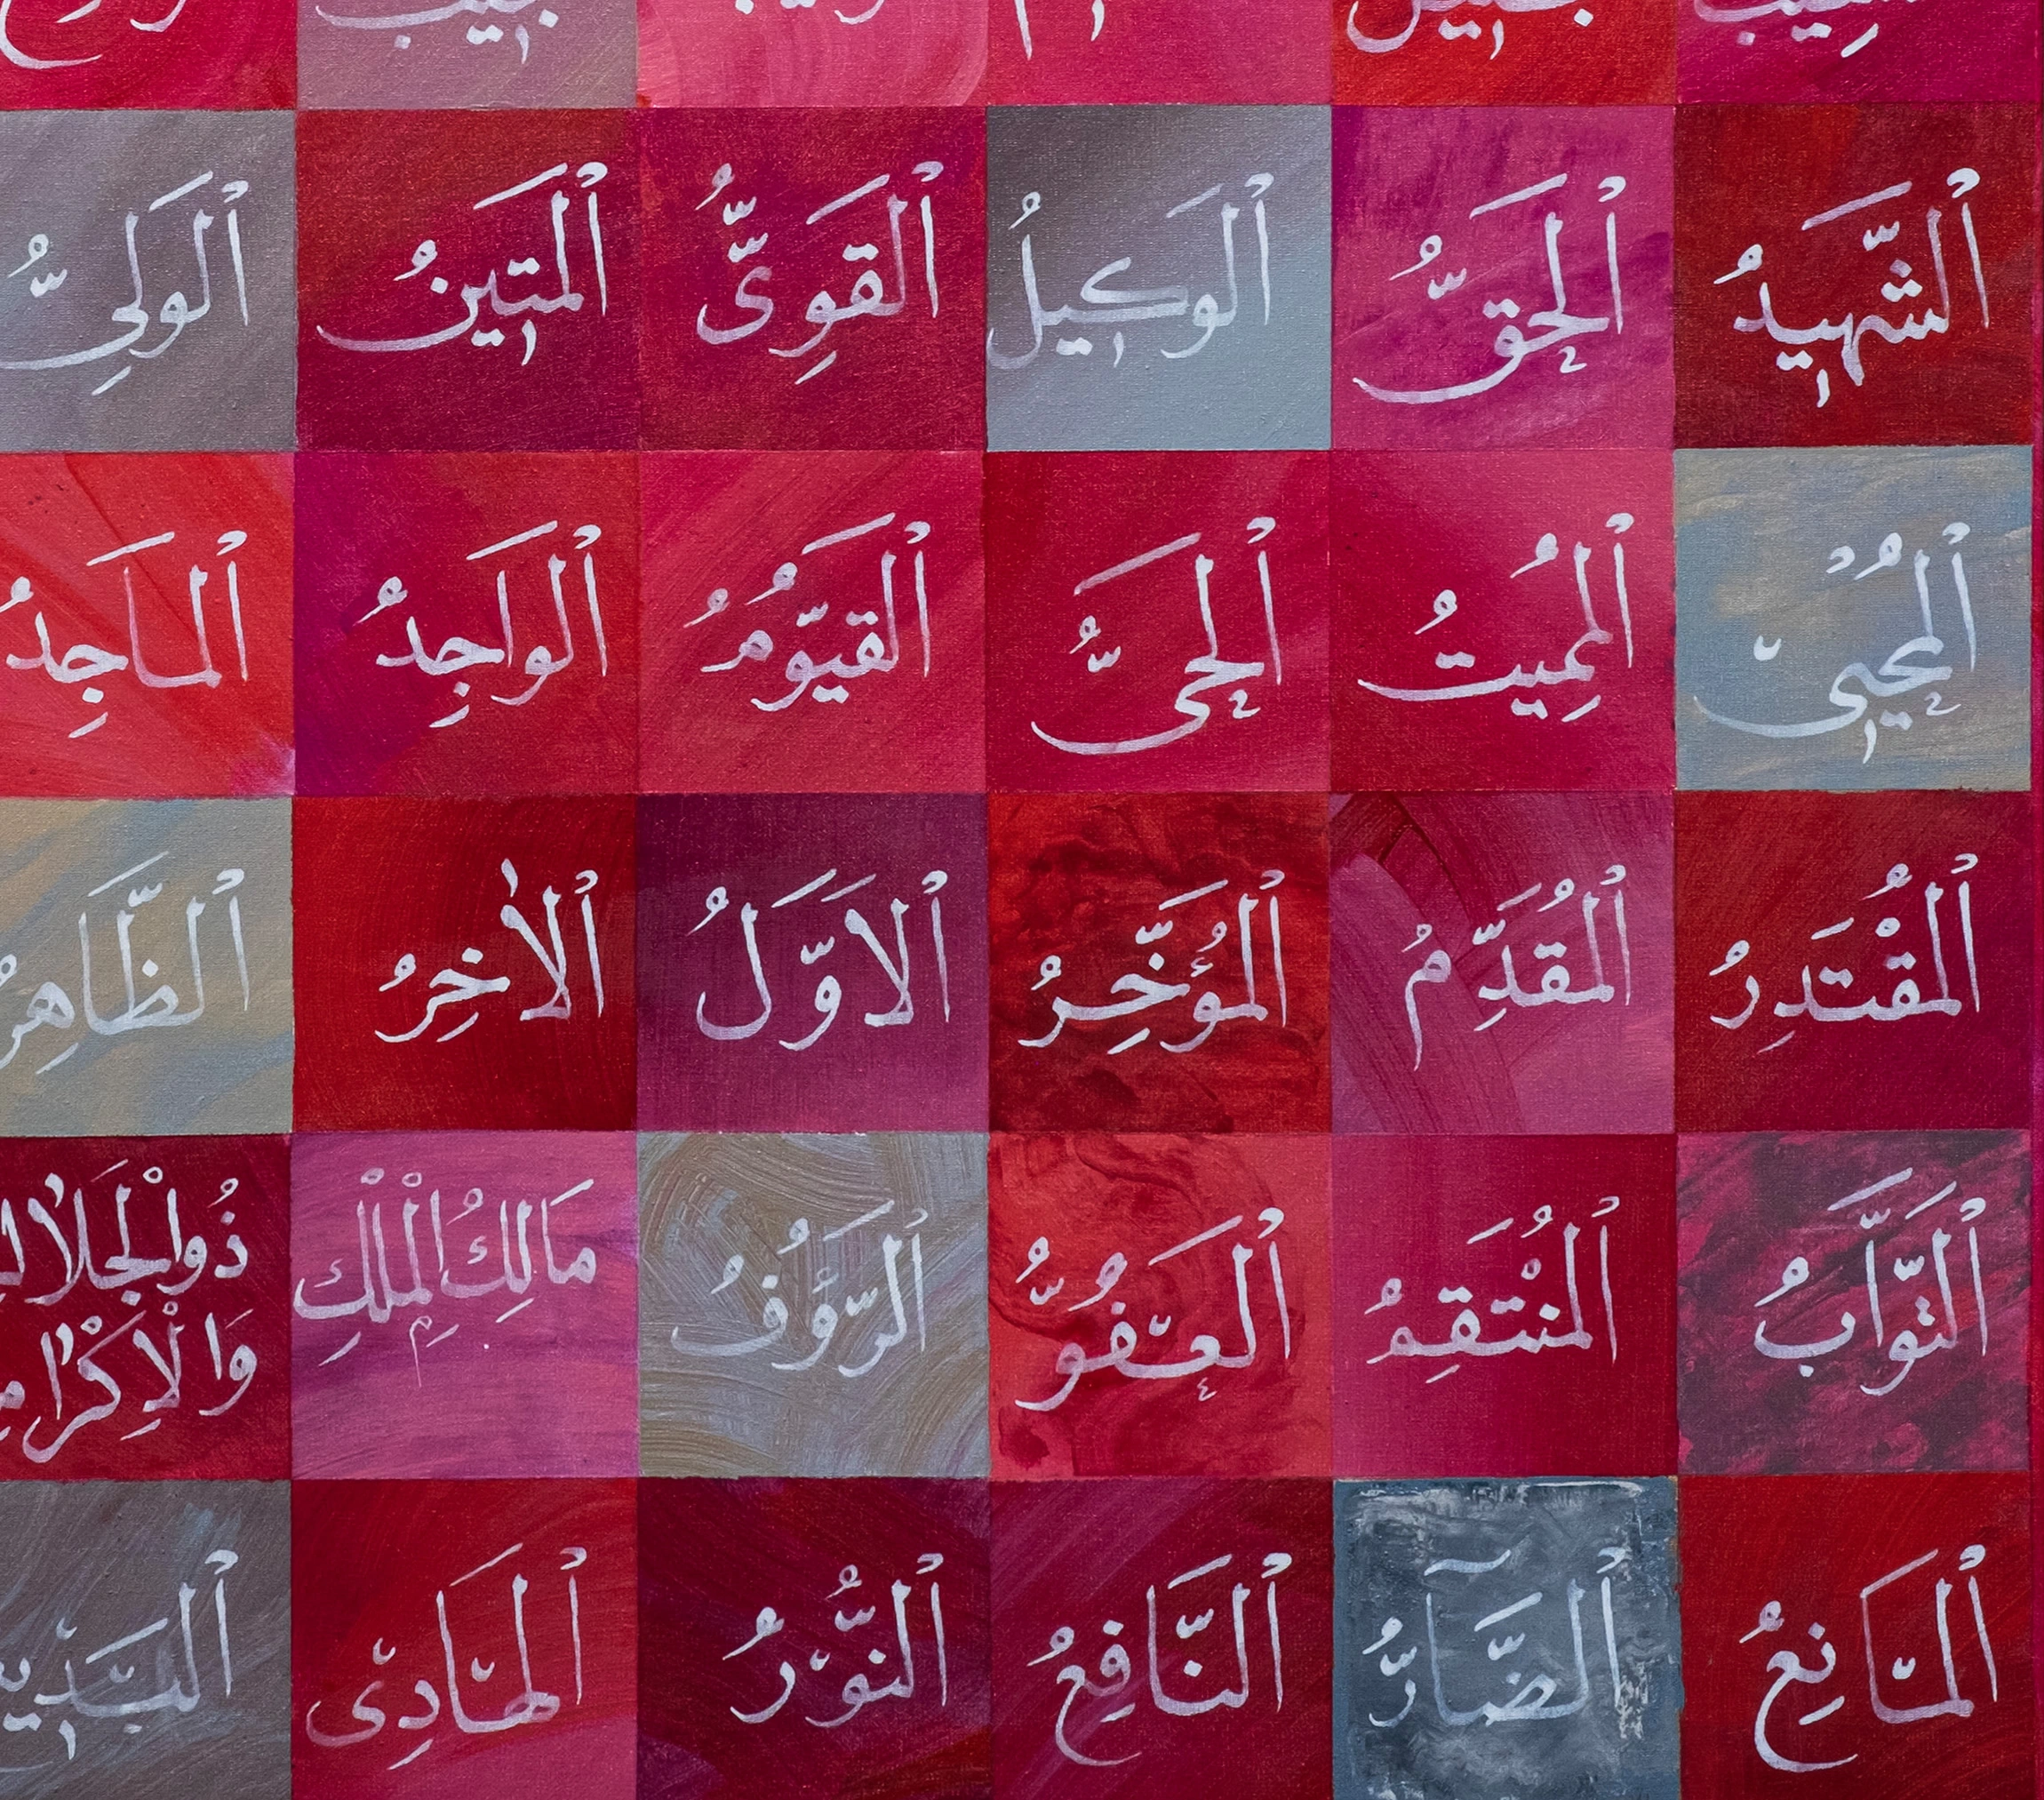 اَلشَّهِيدُ اَلْحَقُّ اَلْوَكِيلُ اَلْقَوِىُّ اَلْمَتِينُ اَلْوَلِىُّ
اَلْمُحْيِى اَلْمُمِيتُ اَلْحَىُّ اَلْقَيُّومُ اَلْوَاجِدُ اَلْمَاجِدُ
اَلْمُقْتَدِرُ اَلْمُقَدِّمُ اَلْمُؤَخِّرُ اَلْاَوَّلُ اَلْاٰخِرُ اَلظَّاهِرُ
اَلتَّوَّابُ اَلْمُنْتَقِمُ اَلْعَفُوُّ اَلرَّؤُفُ مَالِكُ الْمُلْكِ ذُوالْجَلَالِ
وَالْاِكْرَامِ
اَلْمَانِعُ اَلضَّآرُّ اَلنَّافِعُ اَلنُّورُ اَلْهَادِى